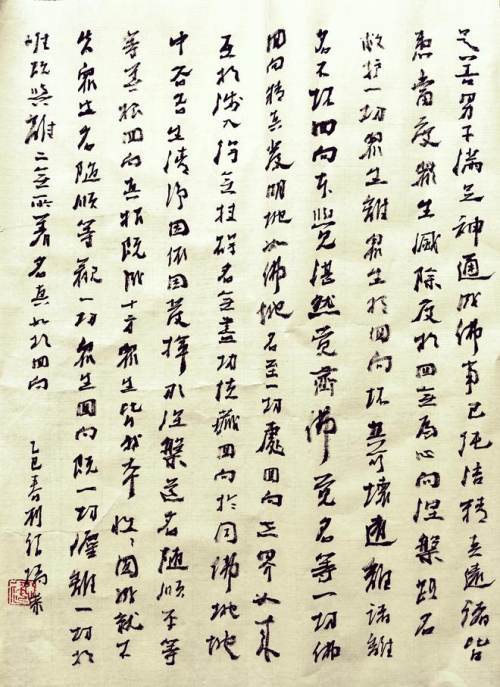 是善男子滿足神通成佛事已純潔精真遠諸留
患當度眾生滅除度相回無為心向涅槃路名
救護一切眾生離眾生相回向壞其可壞遠離諸離
名不壞回向本覺湛然覺齊佛覺名等一切佛
回向精真發明地如佛地名至一切處回向世界如來
互相涉入得無罣礙名無盡功德藏回向於同佛地地
中各各生清淨因依因發揮取涅槃道名隨順平等
等善根回向真根既成十方眾生皆我本性性圓成就不
失眾生名隨順等觀一切眾生回向既一切法離一切相
唯既與離二無所著名真如相回向
乙巳春